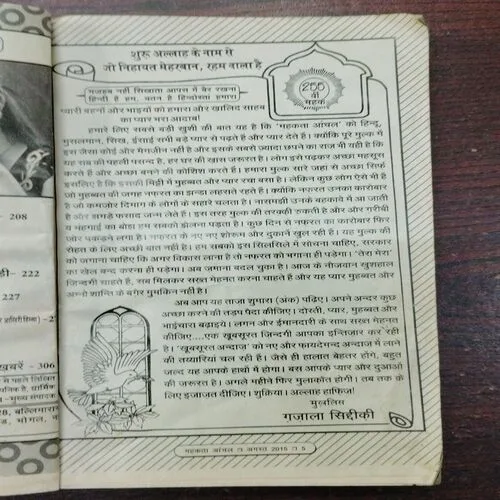 शुरू अल्लाह के नाम से
जो निहायत मेहरबान, रहम वाला है
मज़हब नहीं सिखाता आपस में बैर रखना
हिन्दी हैं हम, वतन है हिन्दोस्तां हमारा
255
वीं
महक
प्यारी बहनों और भाइयों को हमारा और खालिद साहब
का प्यार भरा आदाब!
हमारे लिए सबसे बड़ी खुशी की बात यह है कि 'महकता आंचल' को हिन्दू,
मुसलमान, सिख, ईसाई सभी बड़े प्यार से पढ़ते हैं और प्यार देते हैं। क्योंकि पूरे मुल्क में
इस जैसा कोई और मैगजीन नहीं है और इसके सबसे ज्यादा छपने का राज भी यही है कि
यह सब की पहली पसन्द है, हर घर की खास जरूरत है। लोग इसे पढ़कर अच्छा महसूस
करते हैं और अच्छा बनने की कोशिश करते हैं। हमारा मुल्क सारे जहां से अच्छा सिर्फ
इसलिए है कि इसकी मिट्टी में मुहब्बत और प्यार रचा बसा है। लेकिन कुछ लोग ऐसे भी हैं
जो मुहब्बत की जगह नफरत का झन्डा लहराते रहते हैं। क्योंकि नफरत उनका कारोबार
है जो कमजोर दिमाग के लोगों के सहारे चलता है। नासमझी उनके बहकावे में आ जाती
है और झगड़े फसाद जन्म लेते हैं। इस तरह मुल्क की तरक्की रुकती है और और गरीबी
व महंगाई का बोझ हम सबको झेलना पड़ता है। कुछ दिन से नफरत का कारोबार फिर
जोर पकड़ने लगा है। नफरत के नए नए शोरूम और दुकानें खुल रही हैं। यह मुल्क की
सेहत के लिए अच्छी बात नहीं है। हम सबको इस सिलसिले में सोचना चाहिए, सरकार
को जगाना चाहिए कि अगर विकास लाना है तो नफरत को भगाना ही पड़ेगा। 'तेरा मेरा'
का खेल बन्द करना ही पड़ेगा। अब जमाना बदल चुका है। आज के नौजवान खुशहाल
जिन्दगी चाहते हैं, सब मिलकर सख्त मेहनत करना चाहते हैं और यह प्यार मुहब्बत और
अम्नो शान्ति के बगैर मुमकिन नहीं है।
अब आप यह ताजा शुमारा (अंक) पढ़िए। अपने अन्दर कुछ
अच्छा करने की तड़प पैदा कीजिए। दोस्ती, प्यार, मुहब्बत और
भाईचारा बढ़ाइये। लगन और ईमानदारी के साथ सख्त मेहनत
कीजिए...एक खूबसूरत जिन्दगी आपका इन्तिजार कर रही
है। 'खूबसूरत अन्दाज' को नए और फायदेमन्द अन्दाज में लाने
की तय्यारियां चल रही हैं। जैसे ही हालात बेहतर होंगे, बहुत
जल्द यह आपके हाथों में होगा। बस आपके प्यार और दुआओं
की जरूरत है। अगले महीने फिर मुलाकात होगी। तब तक के
लिए इजाजत दीजिए। शुक्रिया। अल्लाह हाफिज!
मुखलिस
गजाला सिद्दीकी
महकता आंचल अगस्त 2015 5
208
ड़ी- 222
227
खबरें - 306
से पहले लिखित
-मुख्य संपादक
28, बल्लिमारान
भोगल,